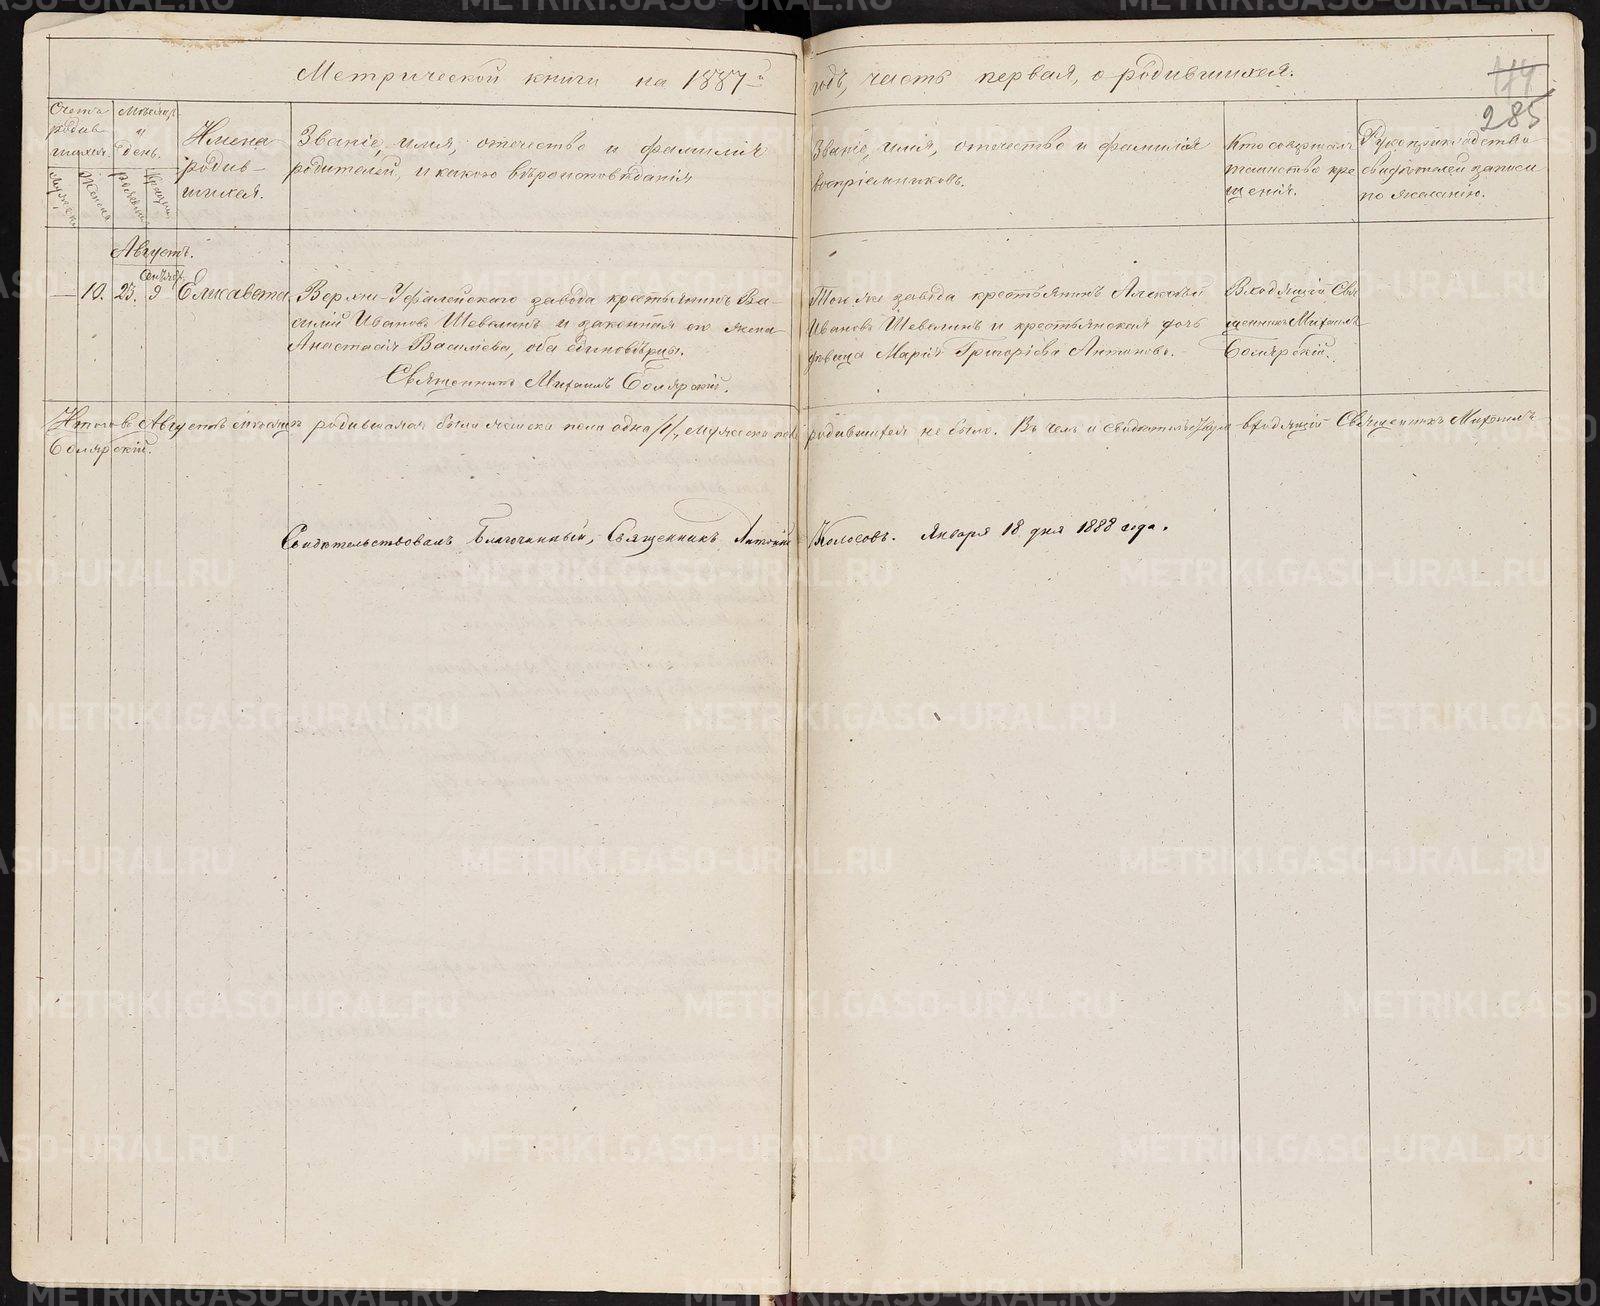 Метрической книги на 1887-й годъ, часть первая, о родившихся.
114
285
Счетъ родив- шихся.
Мужеска
Женска
Мѣсяцъ и день.
рожденія
крещен.
Имена родив- шихся.
Званіе, имя, отчество и фамилія
родителей, и какого вѣроисповѣданія
Званіе, имя, отчество и фамилія
воспріемниковъ.
Кто совершалъ
таинство кре
щенія.
Рукоприкладство
свидѣтелей записи
по желанію.
Августъ.
Сентяб.
— 10. 23. 9 Елисавета
Верхне-Уфалейскаго завода крестьянинъ Ва-
силій Ивановъ Шевелинъ и законная его жена
Анастасія Василіева, оба единовѣрцы.
Священникъ Михаилъ Болярскій.
Того же завода крестьянинъ Алексѣй
Ивановъ Шевелинъ и крестьянская дочь
дѣвица Марія Григоріева Антонова.
Входящій Свя
щенникъ Михаилъ
Болярскій.
Итого въ Августѣ мѣсяцѣ родившаяся была женска пола одна /1/, мужеска пола родившихся не было. Въ чемъ и свидѣтельствую входящій Священникъ Михаилъ
Болярскій.
Свидѣтельствовалъ Благочинный, Священникъ Антоній Колосовъ. Января 18 дня 1888 года.
METRIKI.GASO-URAL.RU